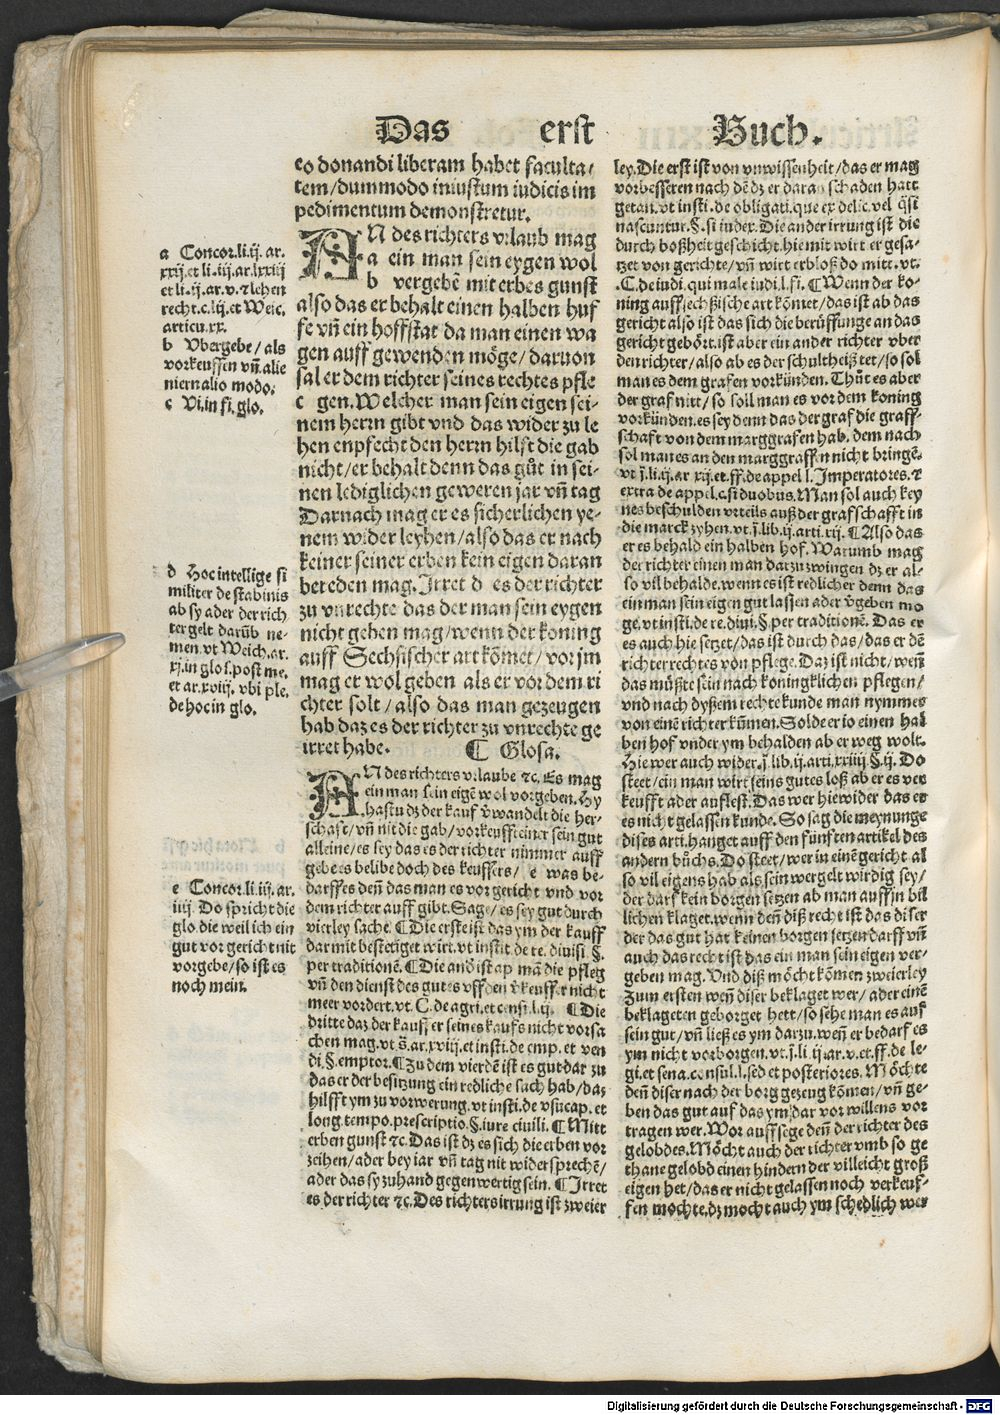 Das erst Buch.
eo donandi liberam habet faculta/
tem/dummodo iniustum iudicis im
pedimentum demonstretur.
AN des richters vrlaub mag
a ein man sein eygen wol
b vergebē mit erbes gunst
also das er behalt einen halben huf
fe vn̄ ein hoffstat da man einen wa
gen auff gewenden möge/daruon
sal er dem richter seines rechtes pfle
c gen. Welcher man sein eigen sei-
nem herrn gibt vnd das wider zu le
hen enpfecht den herrn hilft die gab
nicht/er behalt denn das gůt in sei-
nen lediglichen geweren jar vn̄ tag
Darnach mag er es sicherlichen ye-
nem wider leyhen/also das er nach
keiner seiner erben kein eigen daran
bereden mag. Irret d es der richter
zu vnrechte das der man sein eygen
nicht geben mag/wenn der koning
auff Sechsischer art kōmet/vor jm
mag er wol geben als er vor dem ri
chter solt/also das man gezeugen
hab daz es der richter zu vnrechte ge
irret habe. ¶ Glosa.
AN des richters vrlaube ⁊c. Es mag
ein man sein eigē wol vorgeben. Hy
hastu dz der kauf v̄wandelt die her-
schaft/vn̄ nit die gab/vorkeuft einer sein gut
alleine/es sey das es der richter nimmer auff
gebe es belibe doch des keuffers/ e was be-
darff es deñ das man es vor gericht vnd vor
dem richter auff gibt. Sage/es sey gut durch
vierley sache. ¶ Die erste ist das ym der kauff
darmit bestetiget wirt. vt instit. de re. diuisi. §.
per traditionē. ¶ Die and̄ ist ap mā die pfleg
vn̄ den dienst des gutes vff den v̄keuffer nicht
meer vordert. vt. C. de agri. et censi. l. ij. ¶ Die
dritte daz der kauff er seines kaufs nicht vorsa
chen mag. vt s̄. ar. xviij. et insti. de emp. et ven
di §. emptor. ¶ Zu dem vierdē ist es gut dar zu
das er der besitzung ein redliche sach hab/daz
hilfft ym zu vorwerung. vt insti. de vsucap. et
long. tempo. prescriptio. §. iure ciuili. ¶ Mitt
erben gunst ⁊c. Das ist dz es sich die erben vor
zeihen/ader bey iar vn̄ tag nit widersprechē/
ader das sy zuhand gegenwertig sein. ¶ Irret
es der richter ⁊c. Des richters irrung ist zweier
ley. Die erst ist von vnwissenheit/das er mag
vorbesseren nach dē dz er daran schaden hatt
getan. vt insti. de obligati. que ex delic. vel q̄si
nascuntur. §. si iudex. Die ander irrung ist die
durch boßheit geschicht. hie mit wirt er gesa-
tzet von gerichte/vn̄ wirt erbloß do mitt. vt.
C. de iudi. qui male iudi. l. fi. ¶ Wenn der ko-
ning auff sechßische art kōmet/das ist ab das
gericht also ist das sich die berüffunge an das
gericht gebört. ist aber ein ander richter vber
den richter/also ab es der schultheiß tet/so sol
man es dem grafen vorkünden. Thůt es aber
der graf nitt/so soll man es vor dem koning
vorkünden. es sey denn das der graf die graff-
schaft von dem marggrafen hab. dem nach
sol man es an den marggraffen nicht bringē.
vt j̄. li. ij. ar xij. et. ff. de appel l. Imperatores. ⁊
extra de appel. c. si duobus. Man sol auch key
nes beschulden vrteils auß der grafschafft in
die marck zyhen. vt. j̄. lib. ij. arti. xij. ¶ Also das
er es behald ein halben hof. Warumb mag
der richter einen man darzu zwingen dz er al-
so vil behalde. wenn es ist redlicher denn das
ein man sein eigen gut lassen ader v̄geben mo
ge. vt insti. de re. diui. §. per traditionē. Das er
es auch hie setzet/das ist durch das/das er dē
richter rechtes von pflege. Daz ist nicht/weñ
das müßte sein nach koningklichen pflegen/
vnd nach dyßem rechte kunde man nymmes
von einē richter kūmen. Solde er io einen hal
ben hof vnder ym behalden ab er weg wolt.
Hie wer auch wider. j̄. lib. ij. arti. xxiiij §. ij. Do
steet/ein man wirt seins gutes loß ab er es ver
keufft ader auflest. Das wer hie wider das er
es nicht gelassen kunde. So sag die meynunge
dises arti. hanget auff den fünften artikel des
andern bůchs. Do steet/wer in einē gericht al
so vil eigens hab als sein wergelt wirdig sey/
der darf kein borgen setzen ab man auff in bil
lichen klaget. wenn deñ diß recht ist das diser
der das gut hat keinen borgen setzen darff vn̄
auch das recht ist das ein man sein eigen ver-
geben mag. Vnd diß möcht kōmen zweierley
Zum ersten weñ diser beklaget wer/ader einē
beklageten geborget hett/so sehe man es auf
sein gut/vn̄ ließ es ym darzu. weñ er bedarf es
ym nicht vorborgen. vt. j̄. li. ij. ar. v. et. ff. de le-
gi. et sena. consul. l. sed et posteriores. Möchte
deñ diser nach der borg gezeug kōmen/vn̄ ge-
ben das gut auf das ym dar vor willens vor
tragen wer. Wor auff sege deñ der richter des
gelobdes. Möcht auch der richter vmb so ge
thane gelobd einen hindern der villeicht groß
eigen het/das er nicht gelassen noch verkeuf-
fen mochte. dz mocht auch ym schedlich wer
a Concor. li. ij. ar.
xxij. et li. iij. ar. lxxiij
et li. ij. ar. v. ⁊ lehen
recht. c. lij. et Weic.
articu. xx.
b Vbergebe/als
vorkeuffen vn̄. alie
niern alio modo.
c Vi. in fi. glo.
d Hoc intellige si
militer de stabinis
ab sy ader der rich
ter gelt darūb ne-
men. vt Weich. ar.
xj. in glos. post me.
et ar. xviij. vbi ple.
de hoc in glo.
e Concor. li. iij. ar.
iiij. Do spricht die
glo. die weil ich ein
gut vor gericht nit
vorgebe/so ist es
noch mein.
Digitalisierung gefördert durch die Deutsche Forschungsgemeinschaft - DFG